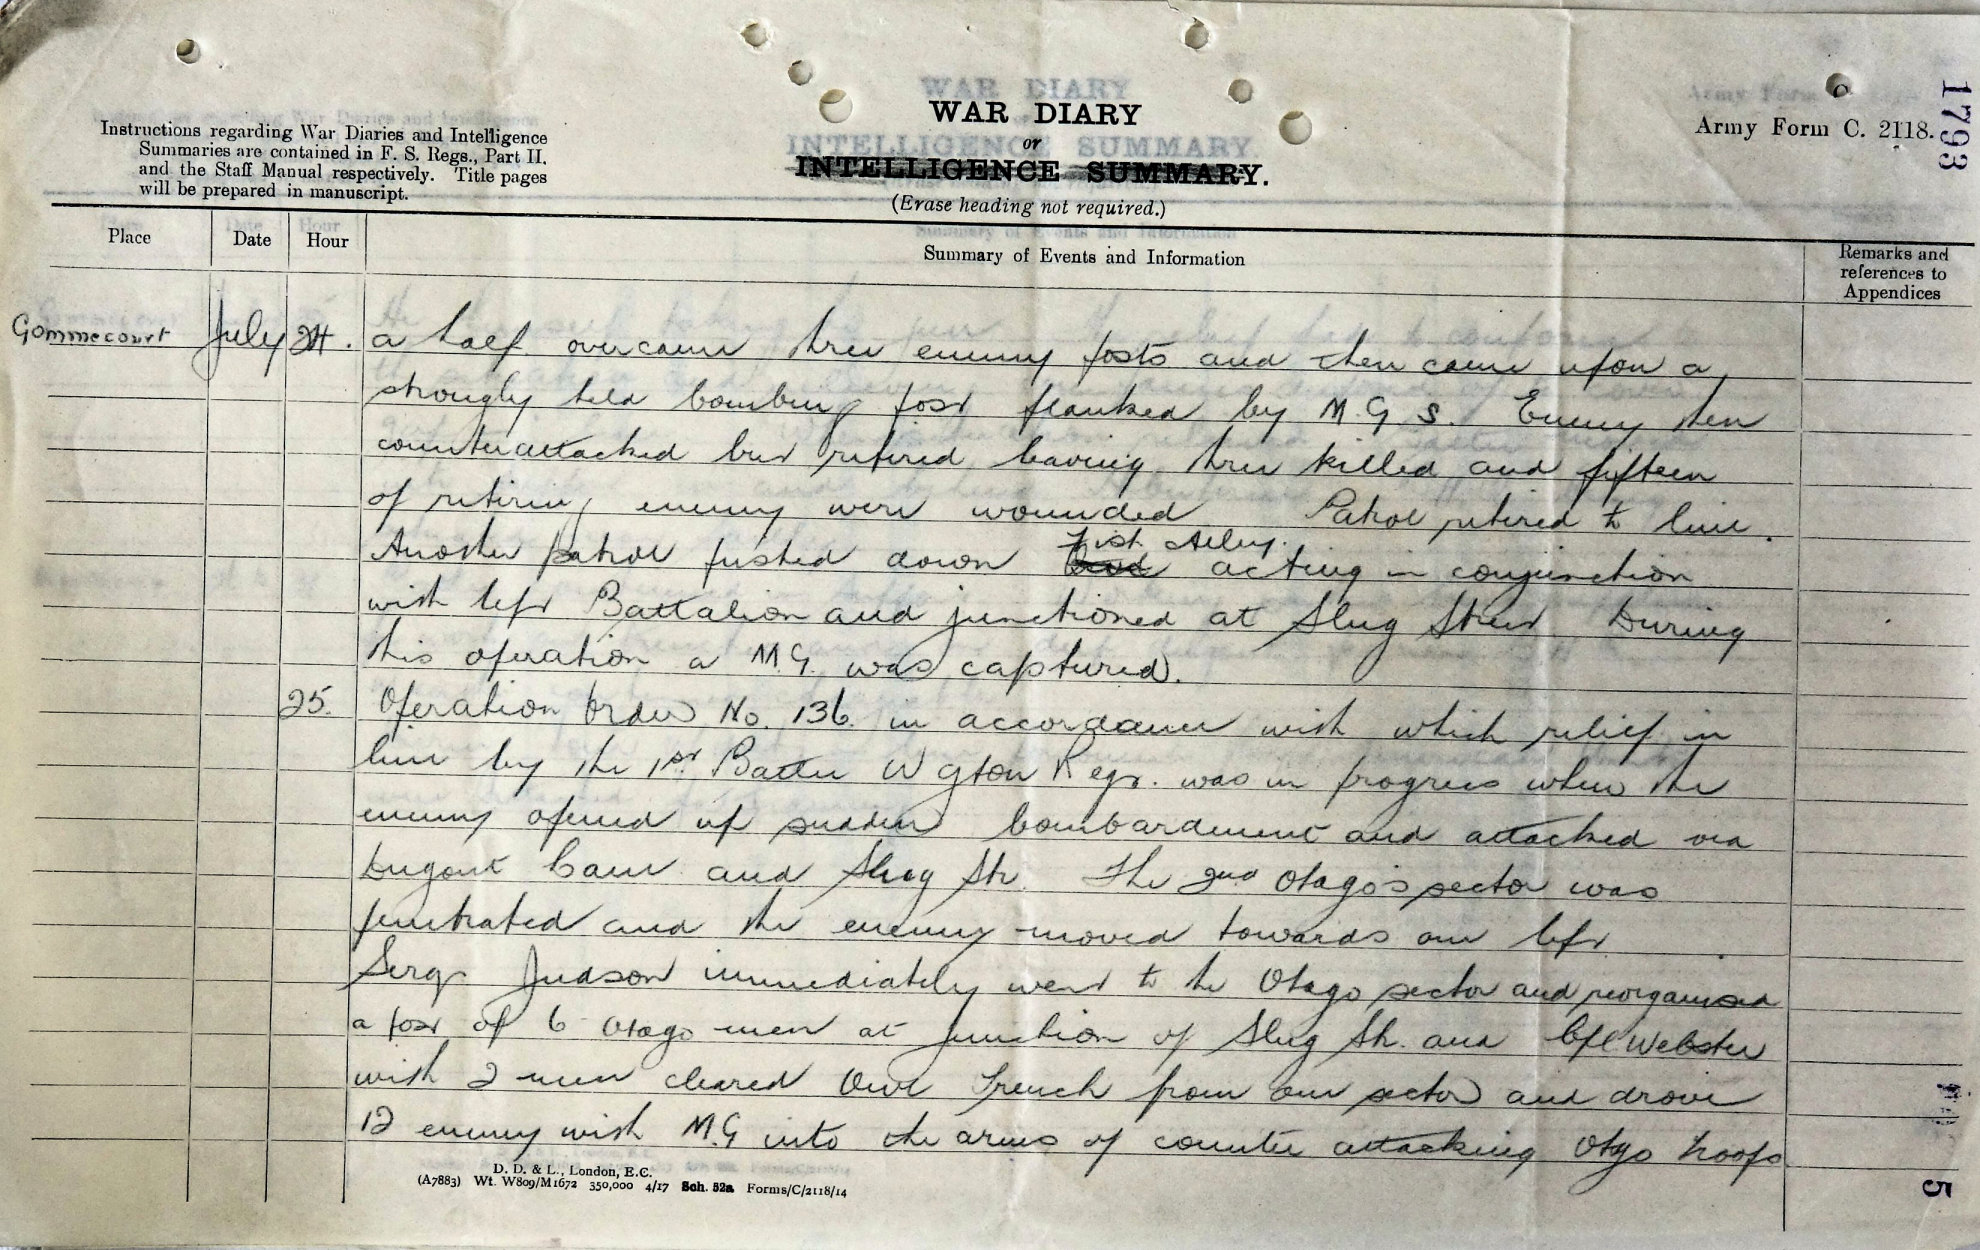 1793
WAR DIARY
or
INTELLIGENCE SUMMARY.
(Erase heading not required.)
Army Form C. 2118.
Instructions regarding War Diaries and Intelligence
Summaries are contained in F. S. Regs., Part II.
and the Staff Manual respectively. Title pages
will be prepared in manuscript.
Place Date Hour Summary of Events and Information Remarks and
references to
Appendices
Gommecourt July 24. a half overcame three enemy posts and then came upon a
strongly held bombing post flanked by M.G.S. Enemy then
counterattacked but retired leaving three killed and fifteen
of retiring enemy were wounded Patrol retired to line.
Another patrol pushed down Fish Alley. acting in conjunction
with left Battalion and junctioned at Slug Street. During
this operation a M.G. was captured.
25. Operation Order No. 136. in accordance with which relief in
line by the 1st Battn Wgton Regt. was in progress when the
enemy opened up sudden bombardment and attacked via
Dugout Lane and Slug St. The 2nd Otago's sector was
penetrated and the enemy moved towards our left
Sergt Judson immediately went to the Otago sector and reorganised
a post of 6 Otago men at junction of Slug St. and Cpl. Webster
with 2 men cleared Owl Trench from our sector and drove
12 enemy with M.G into the arms of counter attacking Otgo troops
D. D. & L., London, E.C.
(A7883) Wt. W809/M1672 350,000 4/17 Sch. 52a Forms/C/2118/14
5